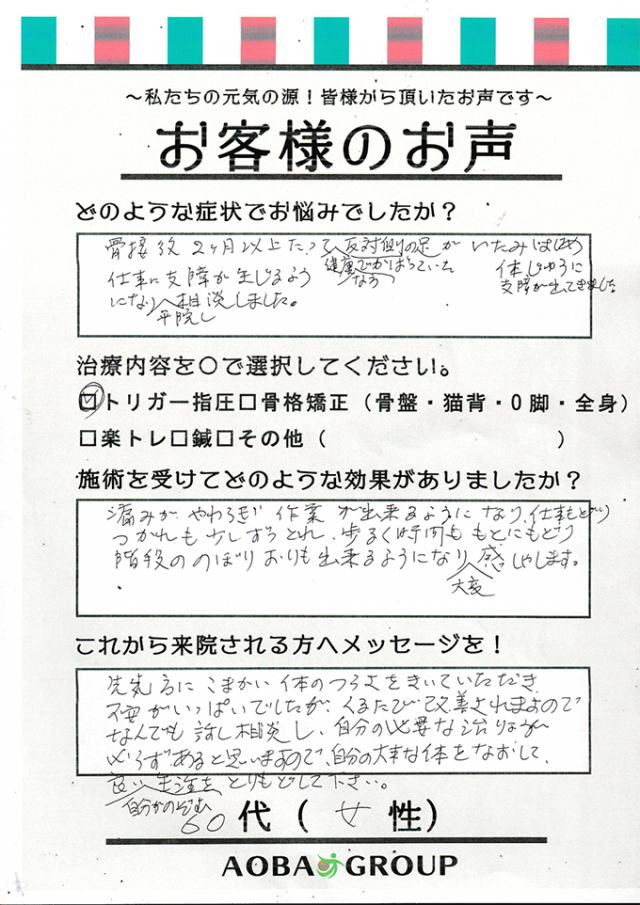 ~私たちの元気の源！皆様から頂いたお声です~
お客様のお声
どのような症状でお悩みでしたか？
骨接後 2ヶ月以上たって、反対側の足が いたみはじめ
健康でかばっていた
なう
体じゅうに
支障が出てきました
仕事に支障が生じるよう
になり 相談しました。
平院し
治療内容を○で選択してください。
☑トリガー指圧□骨格矯正（骨盤・猫背・O脚・全身）
□楽トレ□鍼□その他（ ）
施術を受けてどのような効果がありましたか？
痛みが、やわらぎ 作業 が出来るようになり、仕事もどり
つかれも少しずつとれ、歩く時間も もとにもどり
階段の のぼりおりも出来るようになり 感しゃします。
大変
これから来院される方へメッセージを！
先生方に こまかい 体のつらさをきいていただき
不安がいっぱいでしたが、くるたび改善されますので
なんでも 話し相談し、自分の必要な治りょうが
必らず あると思いますので、自分の大事な体をなおして、
良い 生活を とりもどして下さい。
自分がのぞむ
60代（女性）
AOBA GROUP